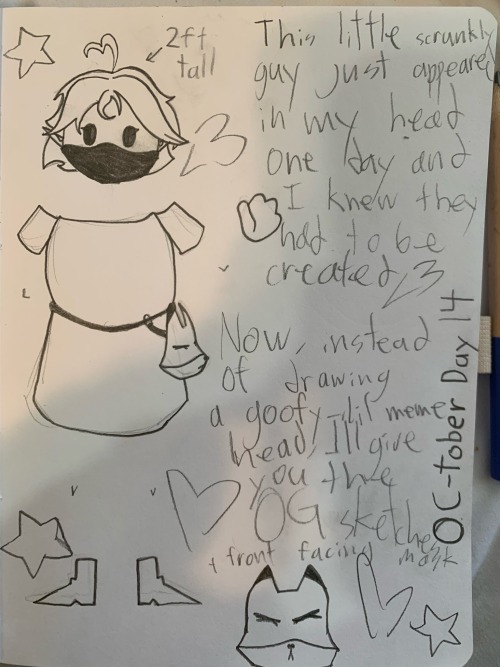 2ft
tall
This little scrunkly
guy just appeared
in my head
one day and
I knew they
had to be
created <3
<3
Now, instead
of drawing
a goofy lil meme
head, I'll give
you the
OG sketches
+ front facing mask
OC-tober Day 14